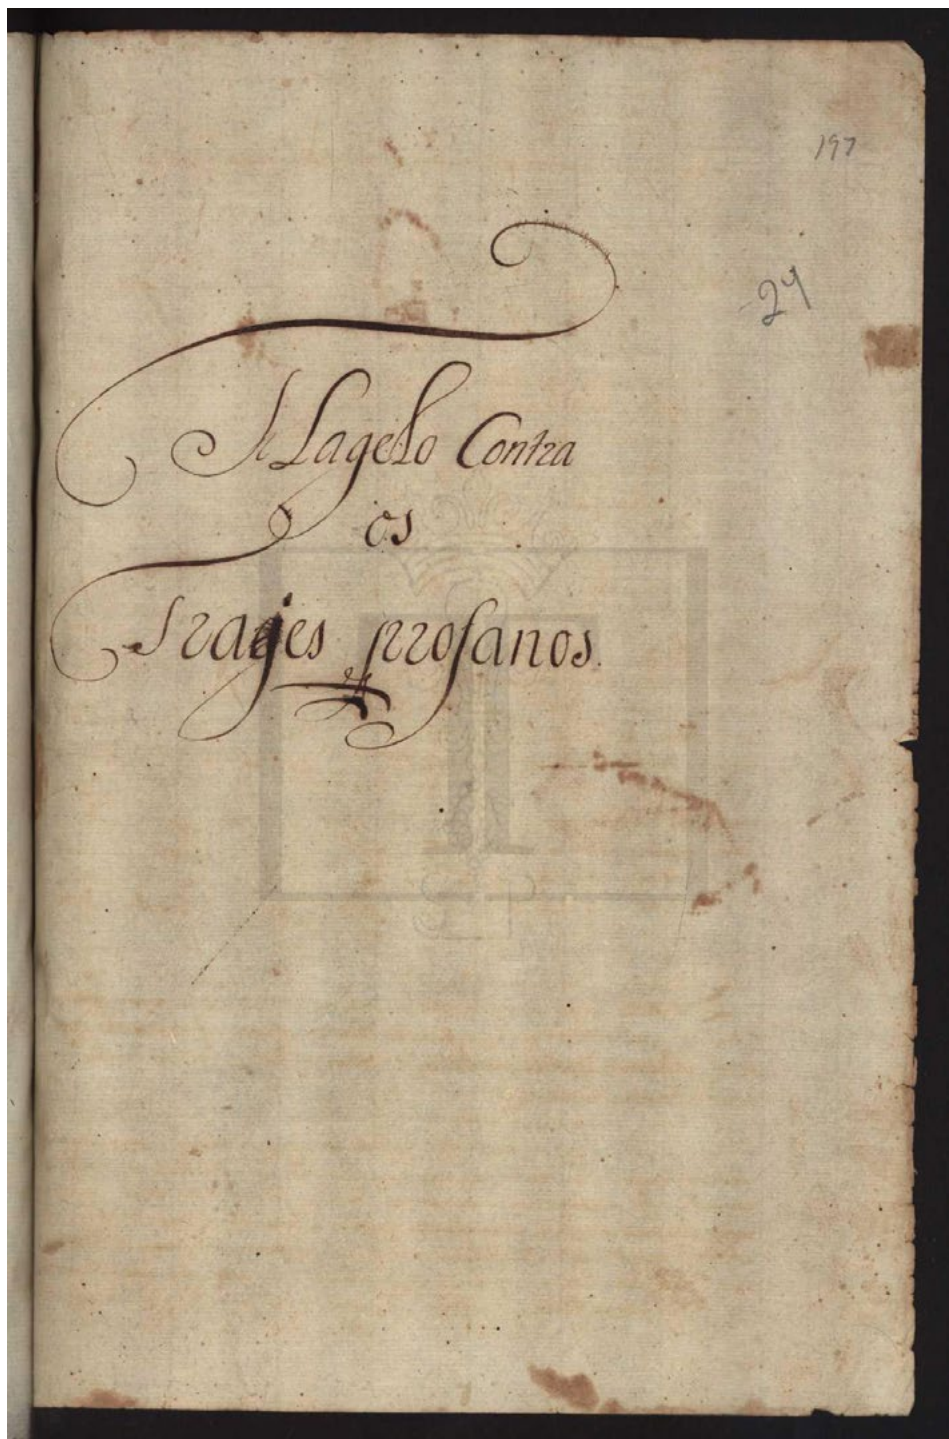 197
24
Flagelo Contra
os
Trajes profanos.